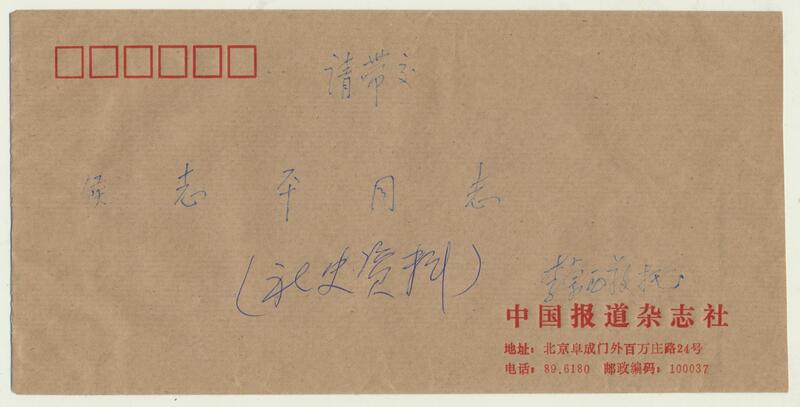 请带交
侯志平同志
(社史资料)
中国报道杂志社
地址：北京阜成门外百万庄路24号
电话：89.6180 邮政编码：100037